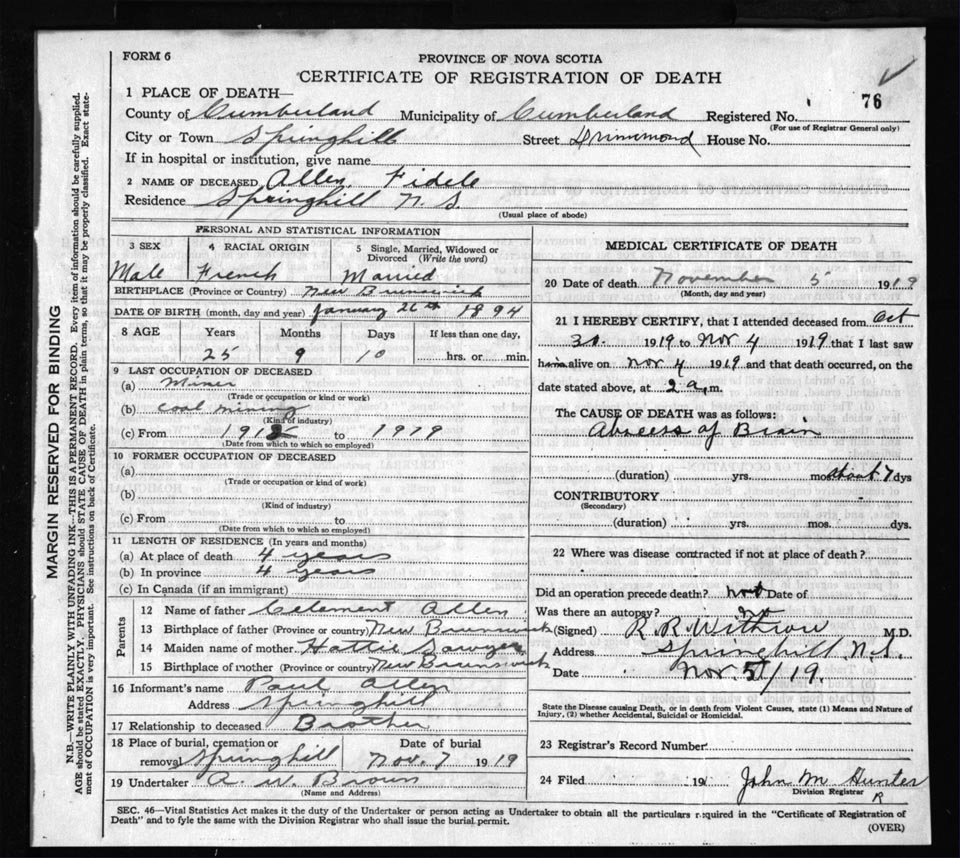 FORM 6
PROVINCE OF NOVA SCOTIA
CERTIFICATE OF REGISTRATION OF DEATH
76
1 PLACE OF DEATH—
County of Cumberland Municipality of Cumberland Registered No.
(For use of Registrar General only)
City or Town Springhill Street Drummond House No.
If in hospital or institution, give name
2 NAME OF DECEASED Allen Fidele
Residence Springhill N. S.
(Usual place of abode)
PERSONAL AND STATISTICAL INFORMATION
3 SEX 4 RACIAL ORIGIN 5 Single, Married, Widowed or Divorced (Write the word)
Male French Married
BIRTHPLACE (Province or Country) New Brunswick
DATE OF BIRTH (month, day and year) January 26th 1894
8 AGE Years Months Days If less than one day,
25 9 10 hrs. or min.
9 LAST OCCUPATION OF DECEASED
(a) Miner
(Trade or occupation or kind or work)
(b) Coal mining
(Kind of industry)
(c) From to 1919
(Date from which to which so employed)
10 FORMER OCCUPATION OF DECEASED
(a)
(Trade or occupation or kind of work)
(b)
(Kind of industry)
(c) From to
(Date from which to which so employed)
11 LENGTH OF RESIDENCE (In years and months)
(a) At place of death 4 years
(b) In province 4 years
(c) In Canada (if an immigrant)
Parents
12 Name of father Clement Allen
13 Birthplace of father (Province or country) New Brunswick
14 Maiden name of mother Hattie Sawyer
15 Birthplace of mother (Province or country) New Brunswick
16 Informant's name Paul Allen
Address Springhill
17 Relationship to deceased Brother
18 Place of burial, cremation or removal Springhill Date of burial Nov. 7 1919
19 Undertaker A. W. Brown
(Name and Address)
MEDICAL CERTIFICATE OF DEATH
20 Date of death November 5 1919
(Month, day and year)
21 I HEREBY CERTIFY, that I attended deceased from Oct
30 1919 to Nov 4 1919 that I last saw
him alive on Nov 4 1919 and that death occurred, on the
date stated above, at 2 a m.
The CAUSE OF DEATH was as follows:
Abscess of Brain
(duration) yrs. mos about 7 dys
CONTRIBUTORY
(Secondary)
(duration) yrs. mos. dys.
22 Where was disease contracted if not at place of death?
Did an operation precede death? not Date of
Was there an autopsy? no
(Signed) R. R. Withrow M.D.
Address Springhill N.S.
Date Nov. 5/19.
State the Disease causing Death, or in death from Violent Causes, state (1) Means and Nature of
Injury, (2) whether Accidental, Suicidal or Homicidal.
23 Registrar's Record Number
24 Filed 191 John M Hunter
Division Registrar
R
SEC. 46—Vital Statistics Act makes it the duty of the Undertaker or person acting as Undertaker to obtain all the particulars required in the "Certificate of Registration of
Death" and to fyle the same with the Division Registrar who shall issue the burial permit.
(OVER)
MARGIN RESERVED FOR BINDING
N.B.—WRITE PLAINLY WITH UNFADING INK—THIS IS A PERMANENT RECORD. Every item of information should be carefully supplied.
AGE should be stated EXACTLY. PHYSICIANS should STATE CAUSE OF DEATH in plain terms, so that it may be properly classified. Exact state-
ment of OCCUPATION is very important. See instructions on back of Certificate.